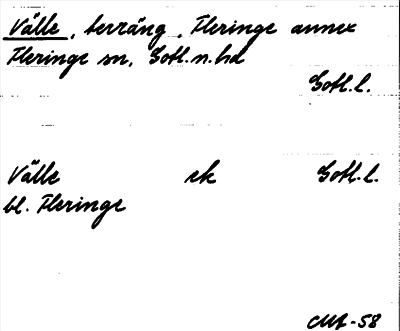 Välle, terräng, Fleringe annex
Fleringe sn, Gotl. n. hd
Gotl. l.
Välle ek Gotl. l.
bl. Fleringe
-58